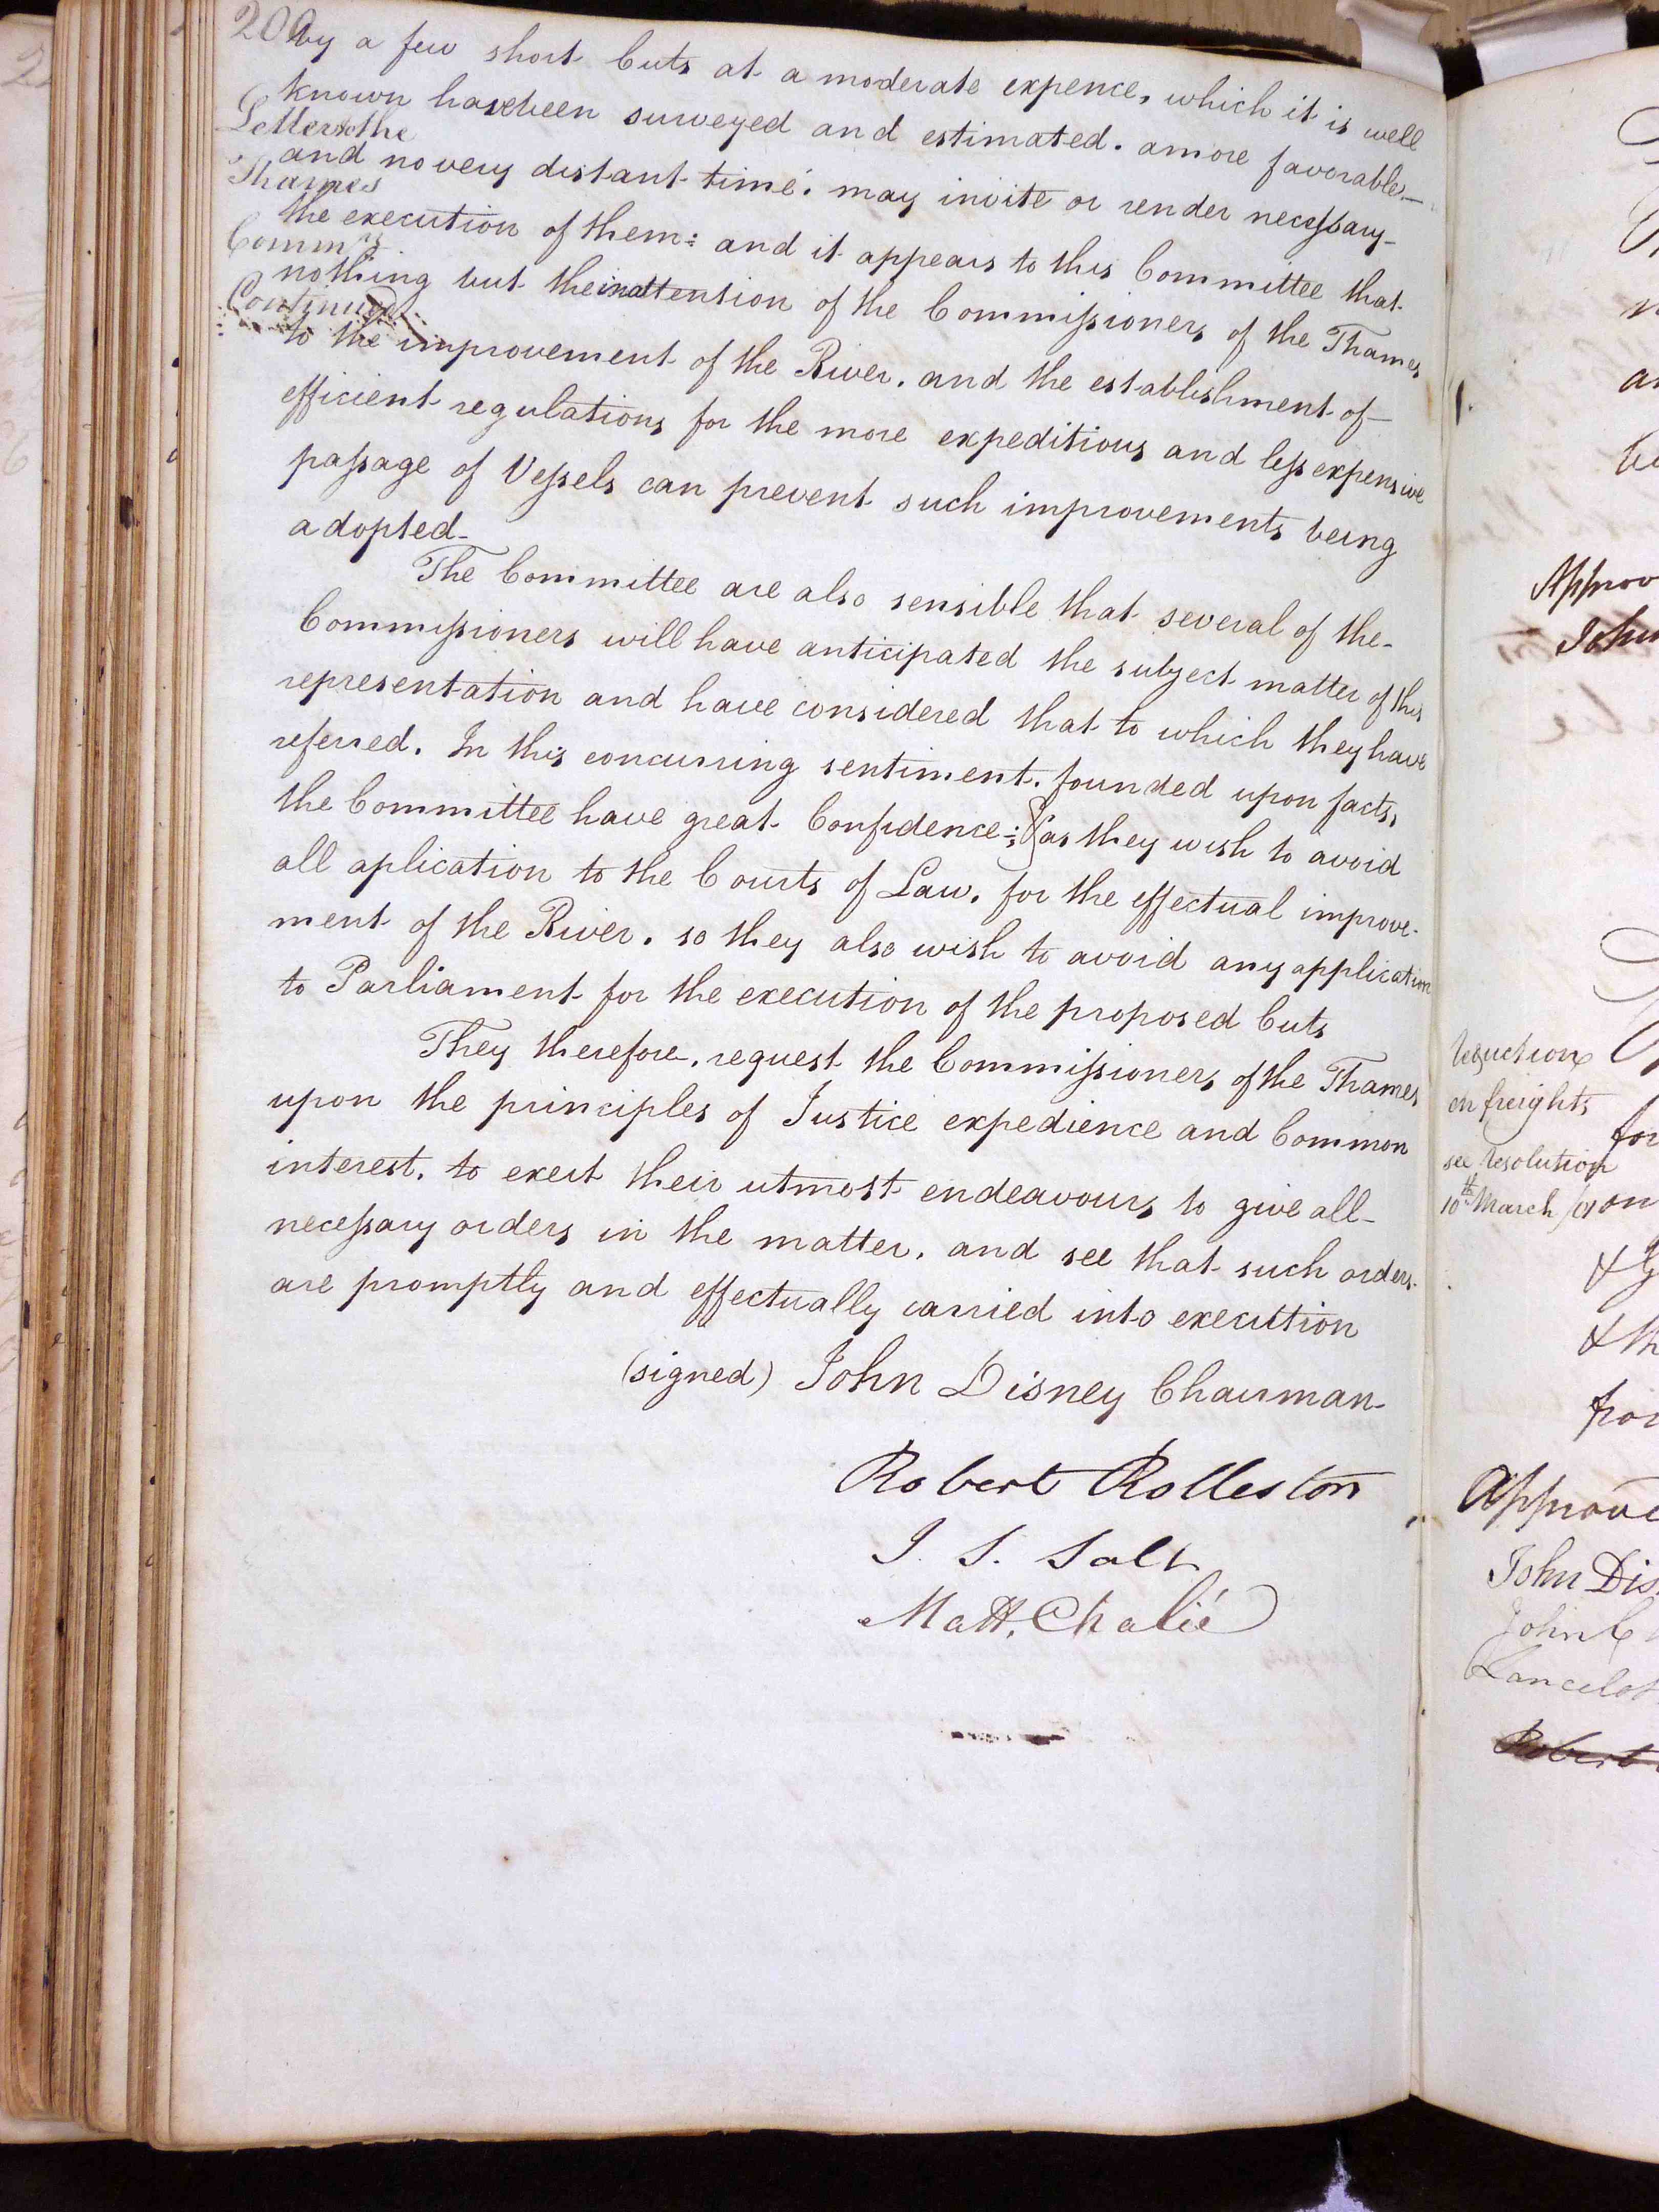 200
by a few short Cuts at a moderate expence, which it is well
known have been surveyed and estimated. a more favorable
and no very distant time. may invite or render necessary
the execution of them: and it appears to this Committee that
nothing but the inattention of the Commissioners of the Thames
to the improvement of the River. and the establishment of
efficient regulations for the more expeditious and less expensive
passage of Vessels can prevent such improvements being
adopted
Letter to the
Thames
Commrs
Continued
The Committee are also sensible that several of the
Commissioners will have anticipated the subject matter of this
representation and have considered that to which they have
referred. In this concurring sentiment. founded upon facts,
the Committee have great Confidence: as they wish to avoid
all aplication to the Courts of Law. for the effectual improve-
ment of the River. so they also wish to avoid any application
to Parliament for the execution of the proposed Cuts
They therefore, request the Commissioners of the Thames
upon the principles of Justice expedience and Common
interest. to exert their utmost endeavours to give all
necessary orders in the matter. and see that such orders
are promptly and effectually carried into execution
(signed) John Disney Chairman
Robert Rolleston
J. S. Salt
Matt. Chalié
Approv
John
Reduction
on freights
see resolution
10th March
for
on
Approve
John Dis
John C
Lancelot
Robert